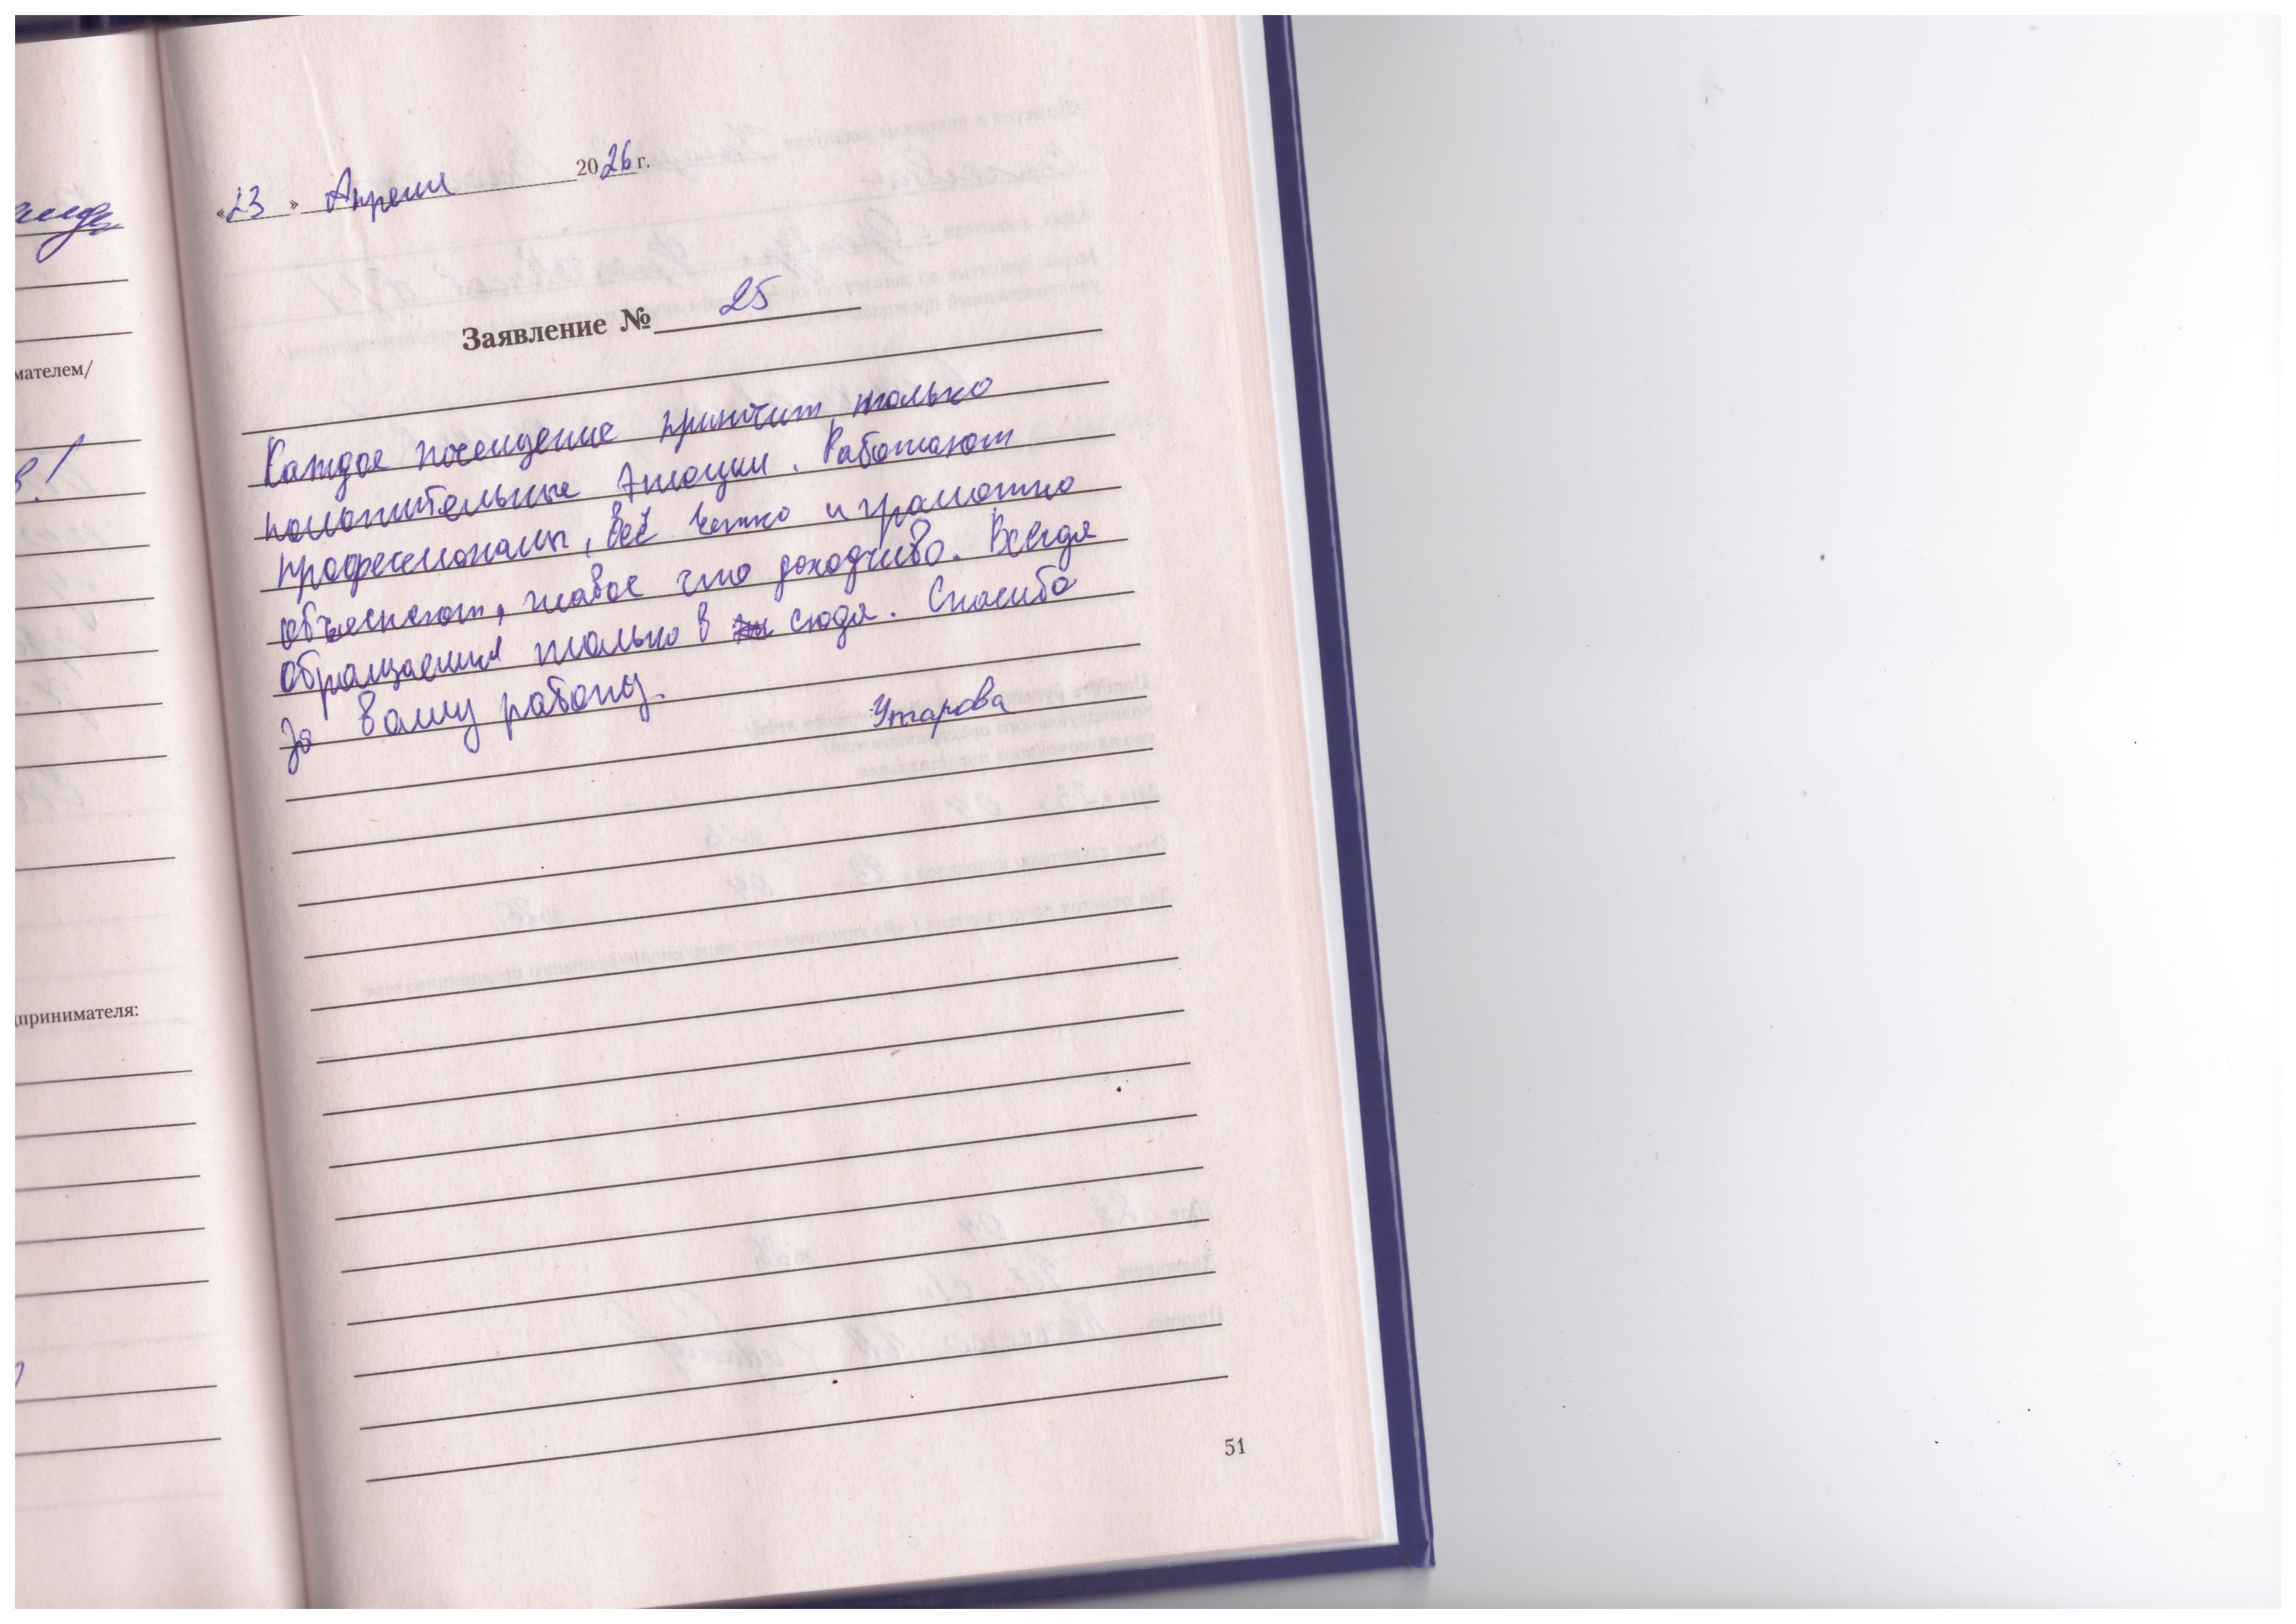 анда
мателем/
в!
принимателя:
«23» Апреля 2026 г.
Заявление № 25
Каждое посещение принчит только
положительные эмоции. Работают
профессионалы, всё четко и грамотно
объясняют, главое что доходчиво. Всегда
обращаемся только в сюда. Спасибо
за вашу работу.
Утарова
51